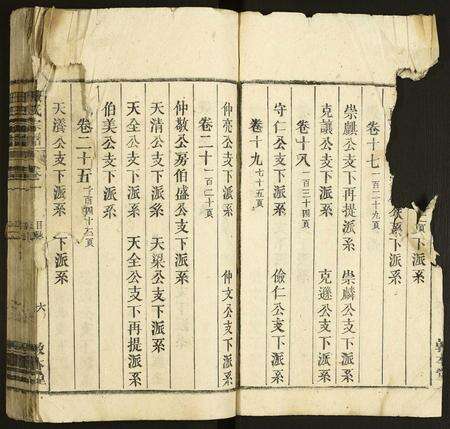 下派系
公支下派系
卷十七 一百二十九頁
崇麒公支下再提派系 崇麟公支下派系
克讓公支下派系 克遜公支下派系
卷十八 一百三十四頁
守仁公支下派系 儉仁公支下派系
卷十九 七十五頁
仲亮公支下派系 仲文公支下派系
卷二十 一百二十頁
仲敬公房伯盛公支下派系
天清公支下派系 天梁公支下派系
天全公支下派系 天全公支下再提派系
伯美公支下派系
卷二十五 一百四十六頁
天濟公支下派系 下派系
目
六
敦本堂